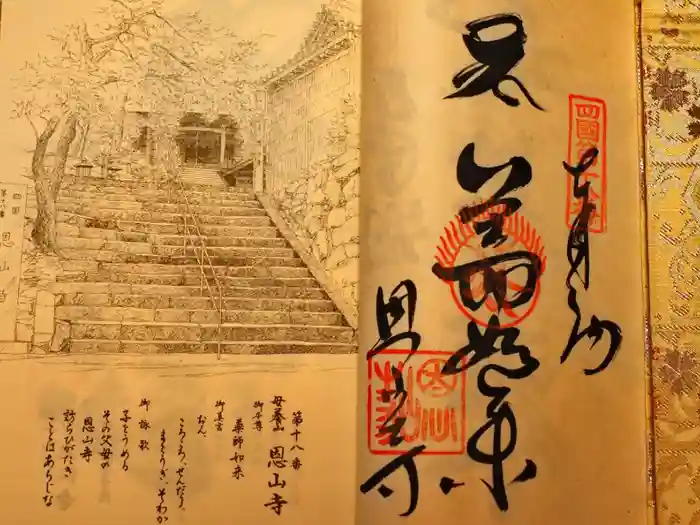 四國第十八番
薬師如来
恩山寺
四国
第十八番
恩山寺
第十八番
母養山 恩山寺
御本尊
薬師如来
御真言
おん、
ころころ、せんだり、
まとうぎ、そわか
御詠歌
子をうめる
その父母の
恩山寺
訪らひがたき
ことはあらじな